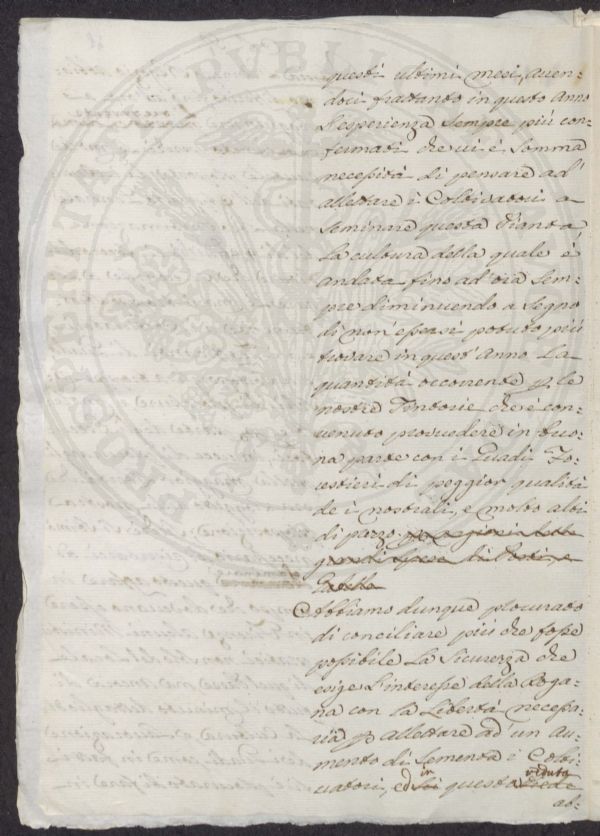 questi ultimi mesi, aven-
doci frattanto in questo Anno
l'esperienza sempre più con-
fermati che vi è somma
necessità di pensare ad'
allettare i Coltivatori a
seminare questa Pianta
la cultura della quale è
andata fino ad'ora sem-
pre diminuendo a segno
di non essersi potuto più
trovare in quest'Anno la
quantità occorrente p le
nostre Tintorie che è con-
venuto provvedere in buo-
na parte con i Guadi Fo-
restieri di peggior qualità
de i nostrali, e molto alti
di prezzo p cagione delle
grandi spese di Porti, e
Gabelle
Abbiamo dunque procurato
di conciliare più che fosse
possibile la sicurezza che
esige l'interesse della Doga-
na con la libertà necessa-
ria p allettare ad un au-
mento di sementa i Colti-
vatori, ed in questa veduta
ab-
PROSPERITATI PVBLICAE